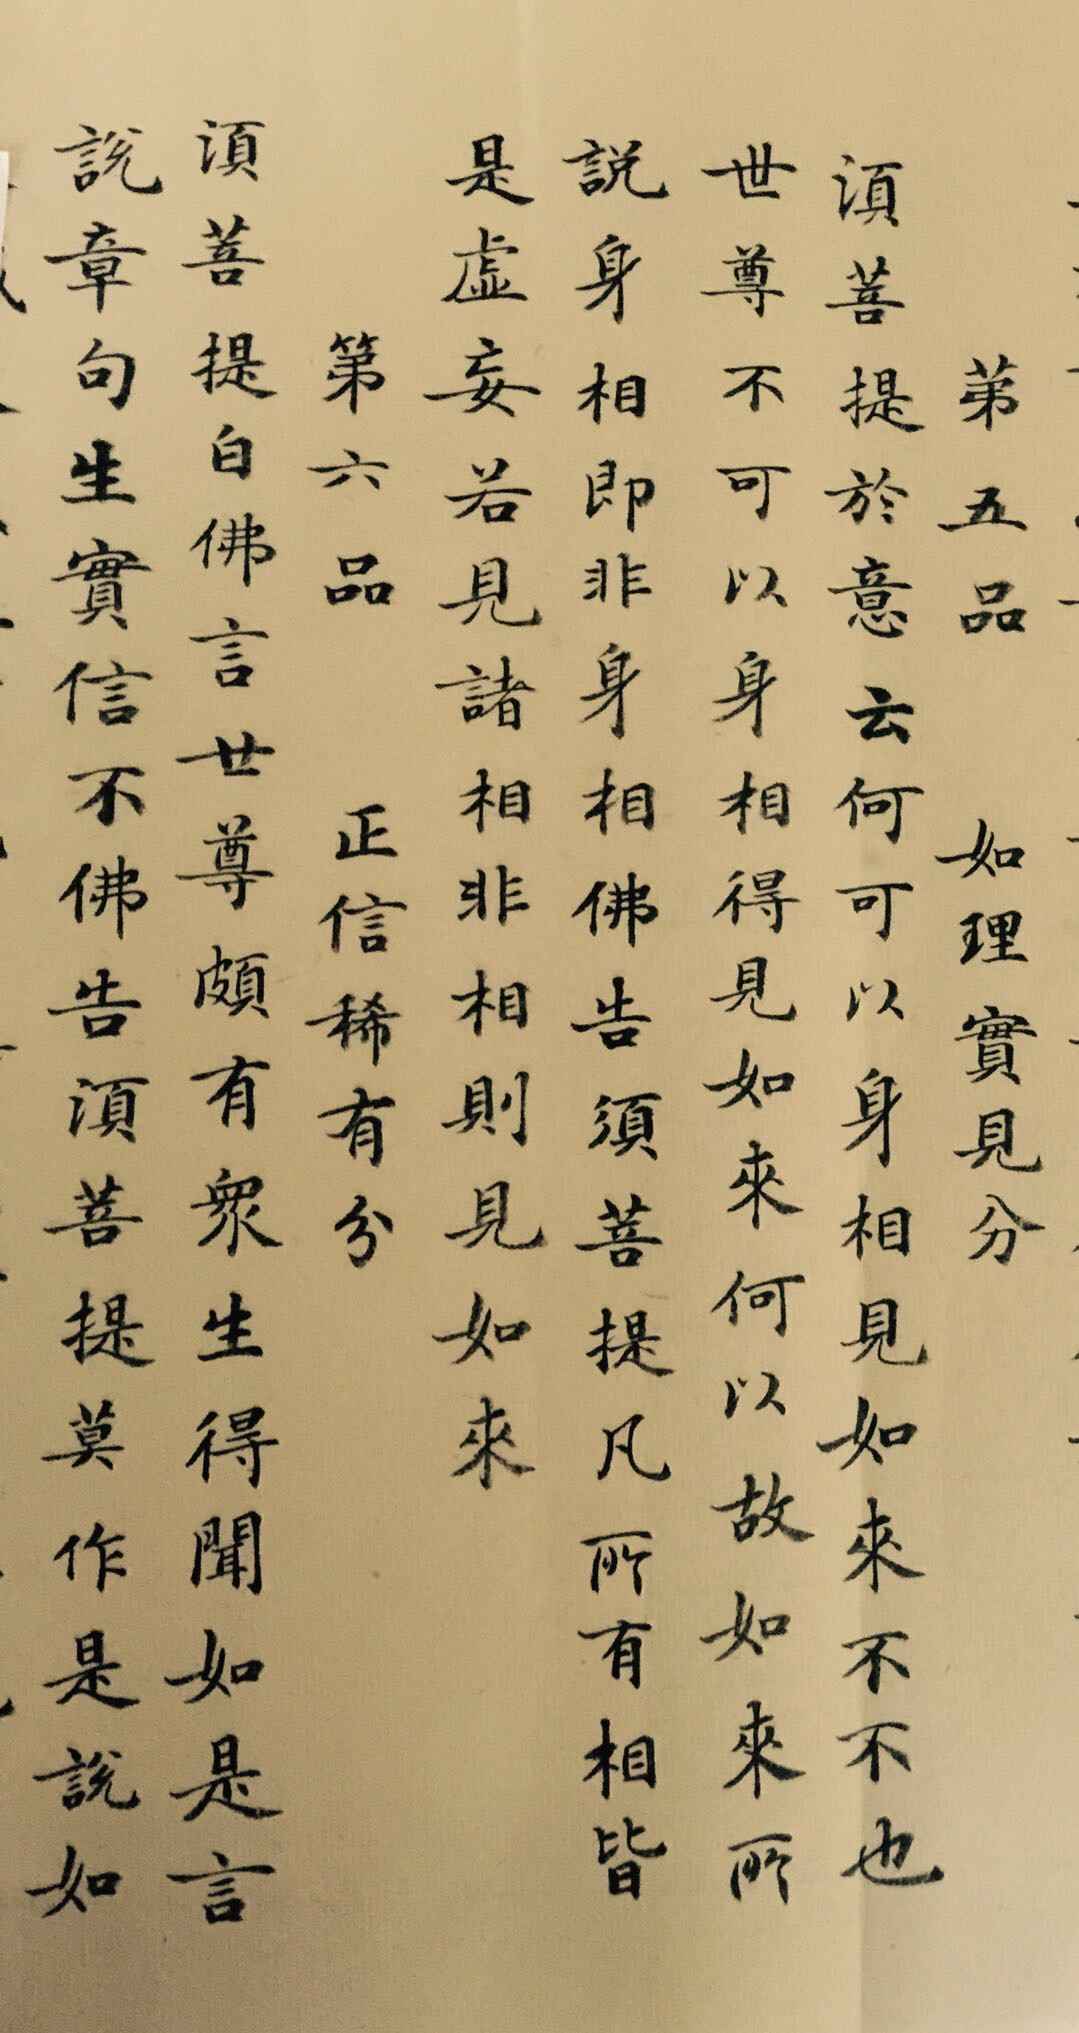 第五品　如理實見分
須菩提於意云何可以身相見如來不不也
世尊不可以身相得見如來何以故如來所
説身相即非身相佛告須菩提凡所有相皆
是虛妄若見諸相非相則見如來
第六品　正信稀有分
須菩提白佛言世尊頗有衆生得聞如是言
說章句生實信不佛告須菩提莫作是說如